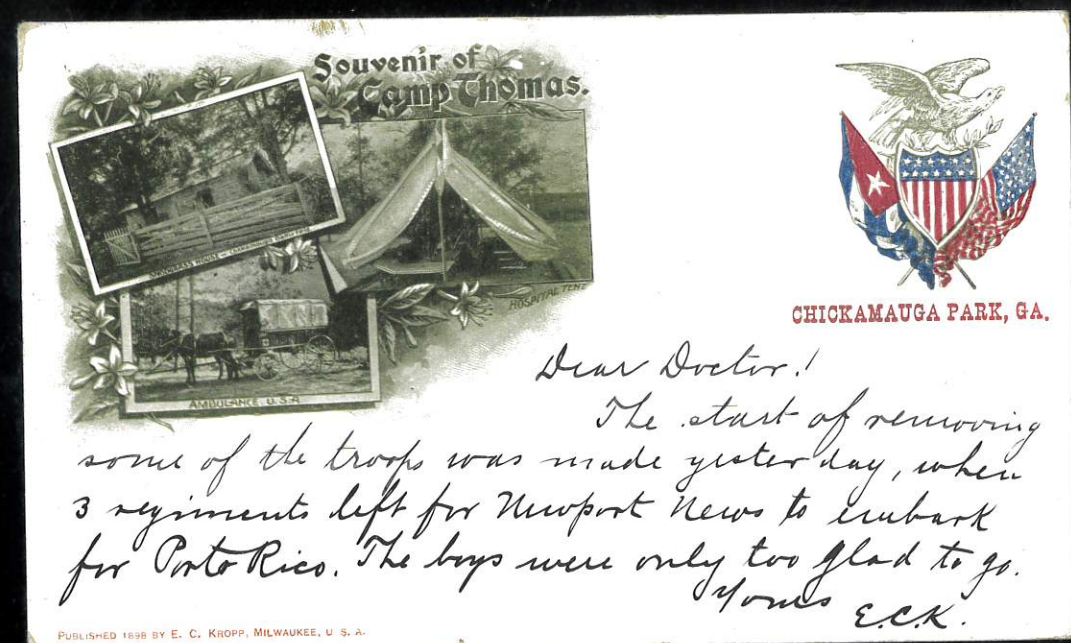 Souvenir of
Camp Thomas.
SNODGRASS HOUSE - CHICKAMAUGA
HOSPITAL TENT
AMBULANCE, U.S.A
CHICKAMAUGA PARK, GA.
Dear Doctor!
The start of removing
some of the troops was made yesterday, when
3 regiments left for Newport News to embark
for Porto Rico. The boys were only too glad to go.
Yours
E.C.K.
PUBLISHED 1898 BY E. C. KROPP, MILWAUKEE, U. S. A.